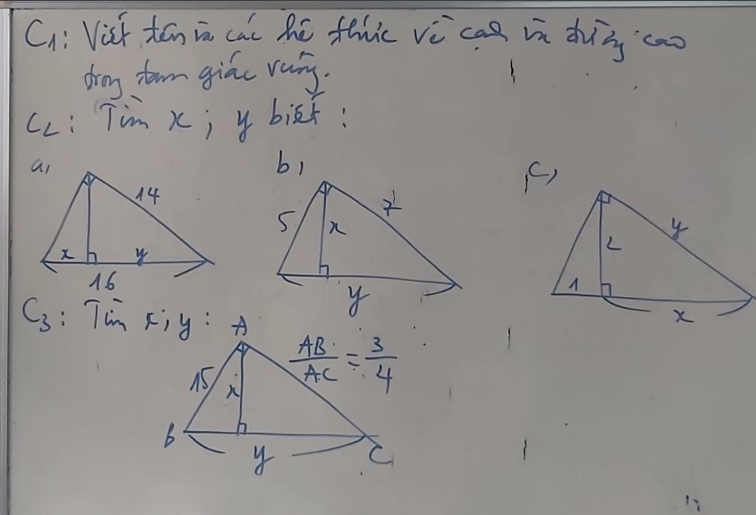 C1: Viết tên và các hệ thức về cạnh và đường cao
trong tam giác vuông.
C2: Tìm x; y biết:
a,
14
x
y
16
b,
5
x
7
y
c,
1
2
y
x
C3: Tìm x; y:
A
15
x
B
y
C
AB/AC = 3/4